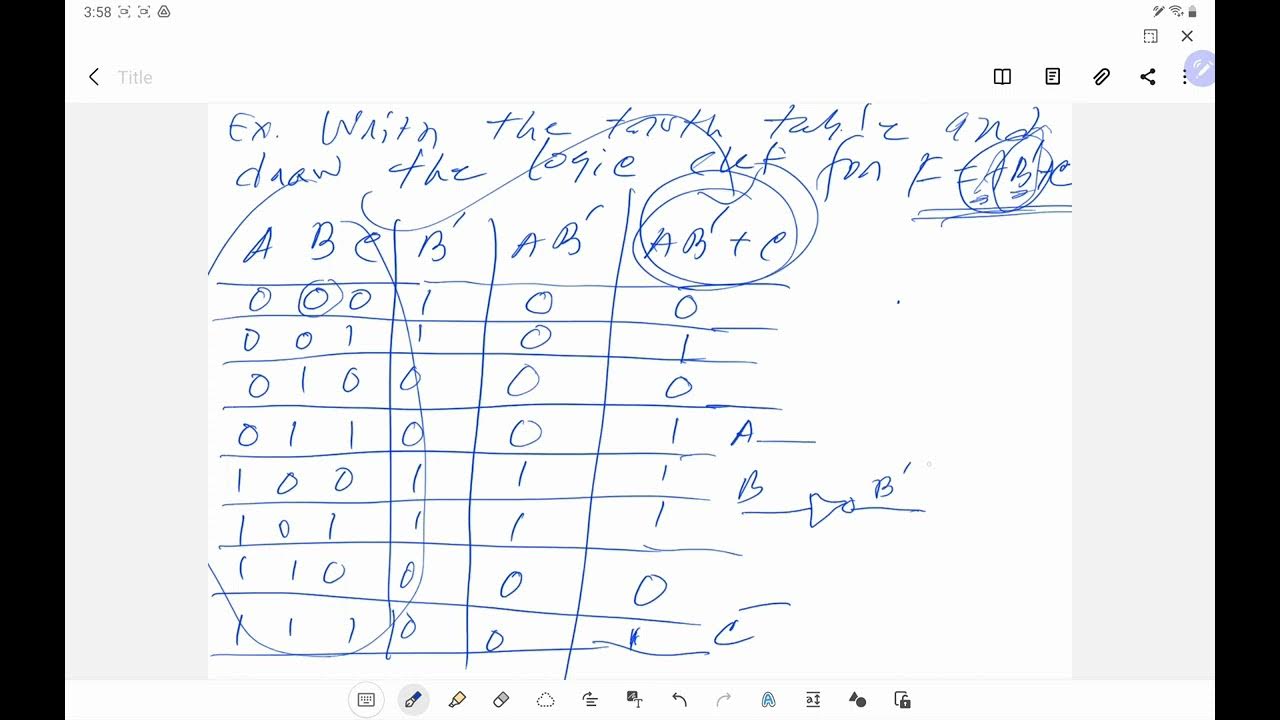 3:58
Title
Ex. Write the truth table and
draw the logic ckt for F = AB'+C
A B C B' AB' AB'+C
0 0 0 1 0 0
0 0 1 1 0 1
0 1 0 0 0 0
0 1 1 0 0 1
1 0 0 1 1 1
1 0 1 1 1 1
1 1 0 0 0 0
1 1 1 0 0 1
A
B B'
C